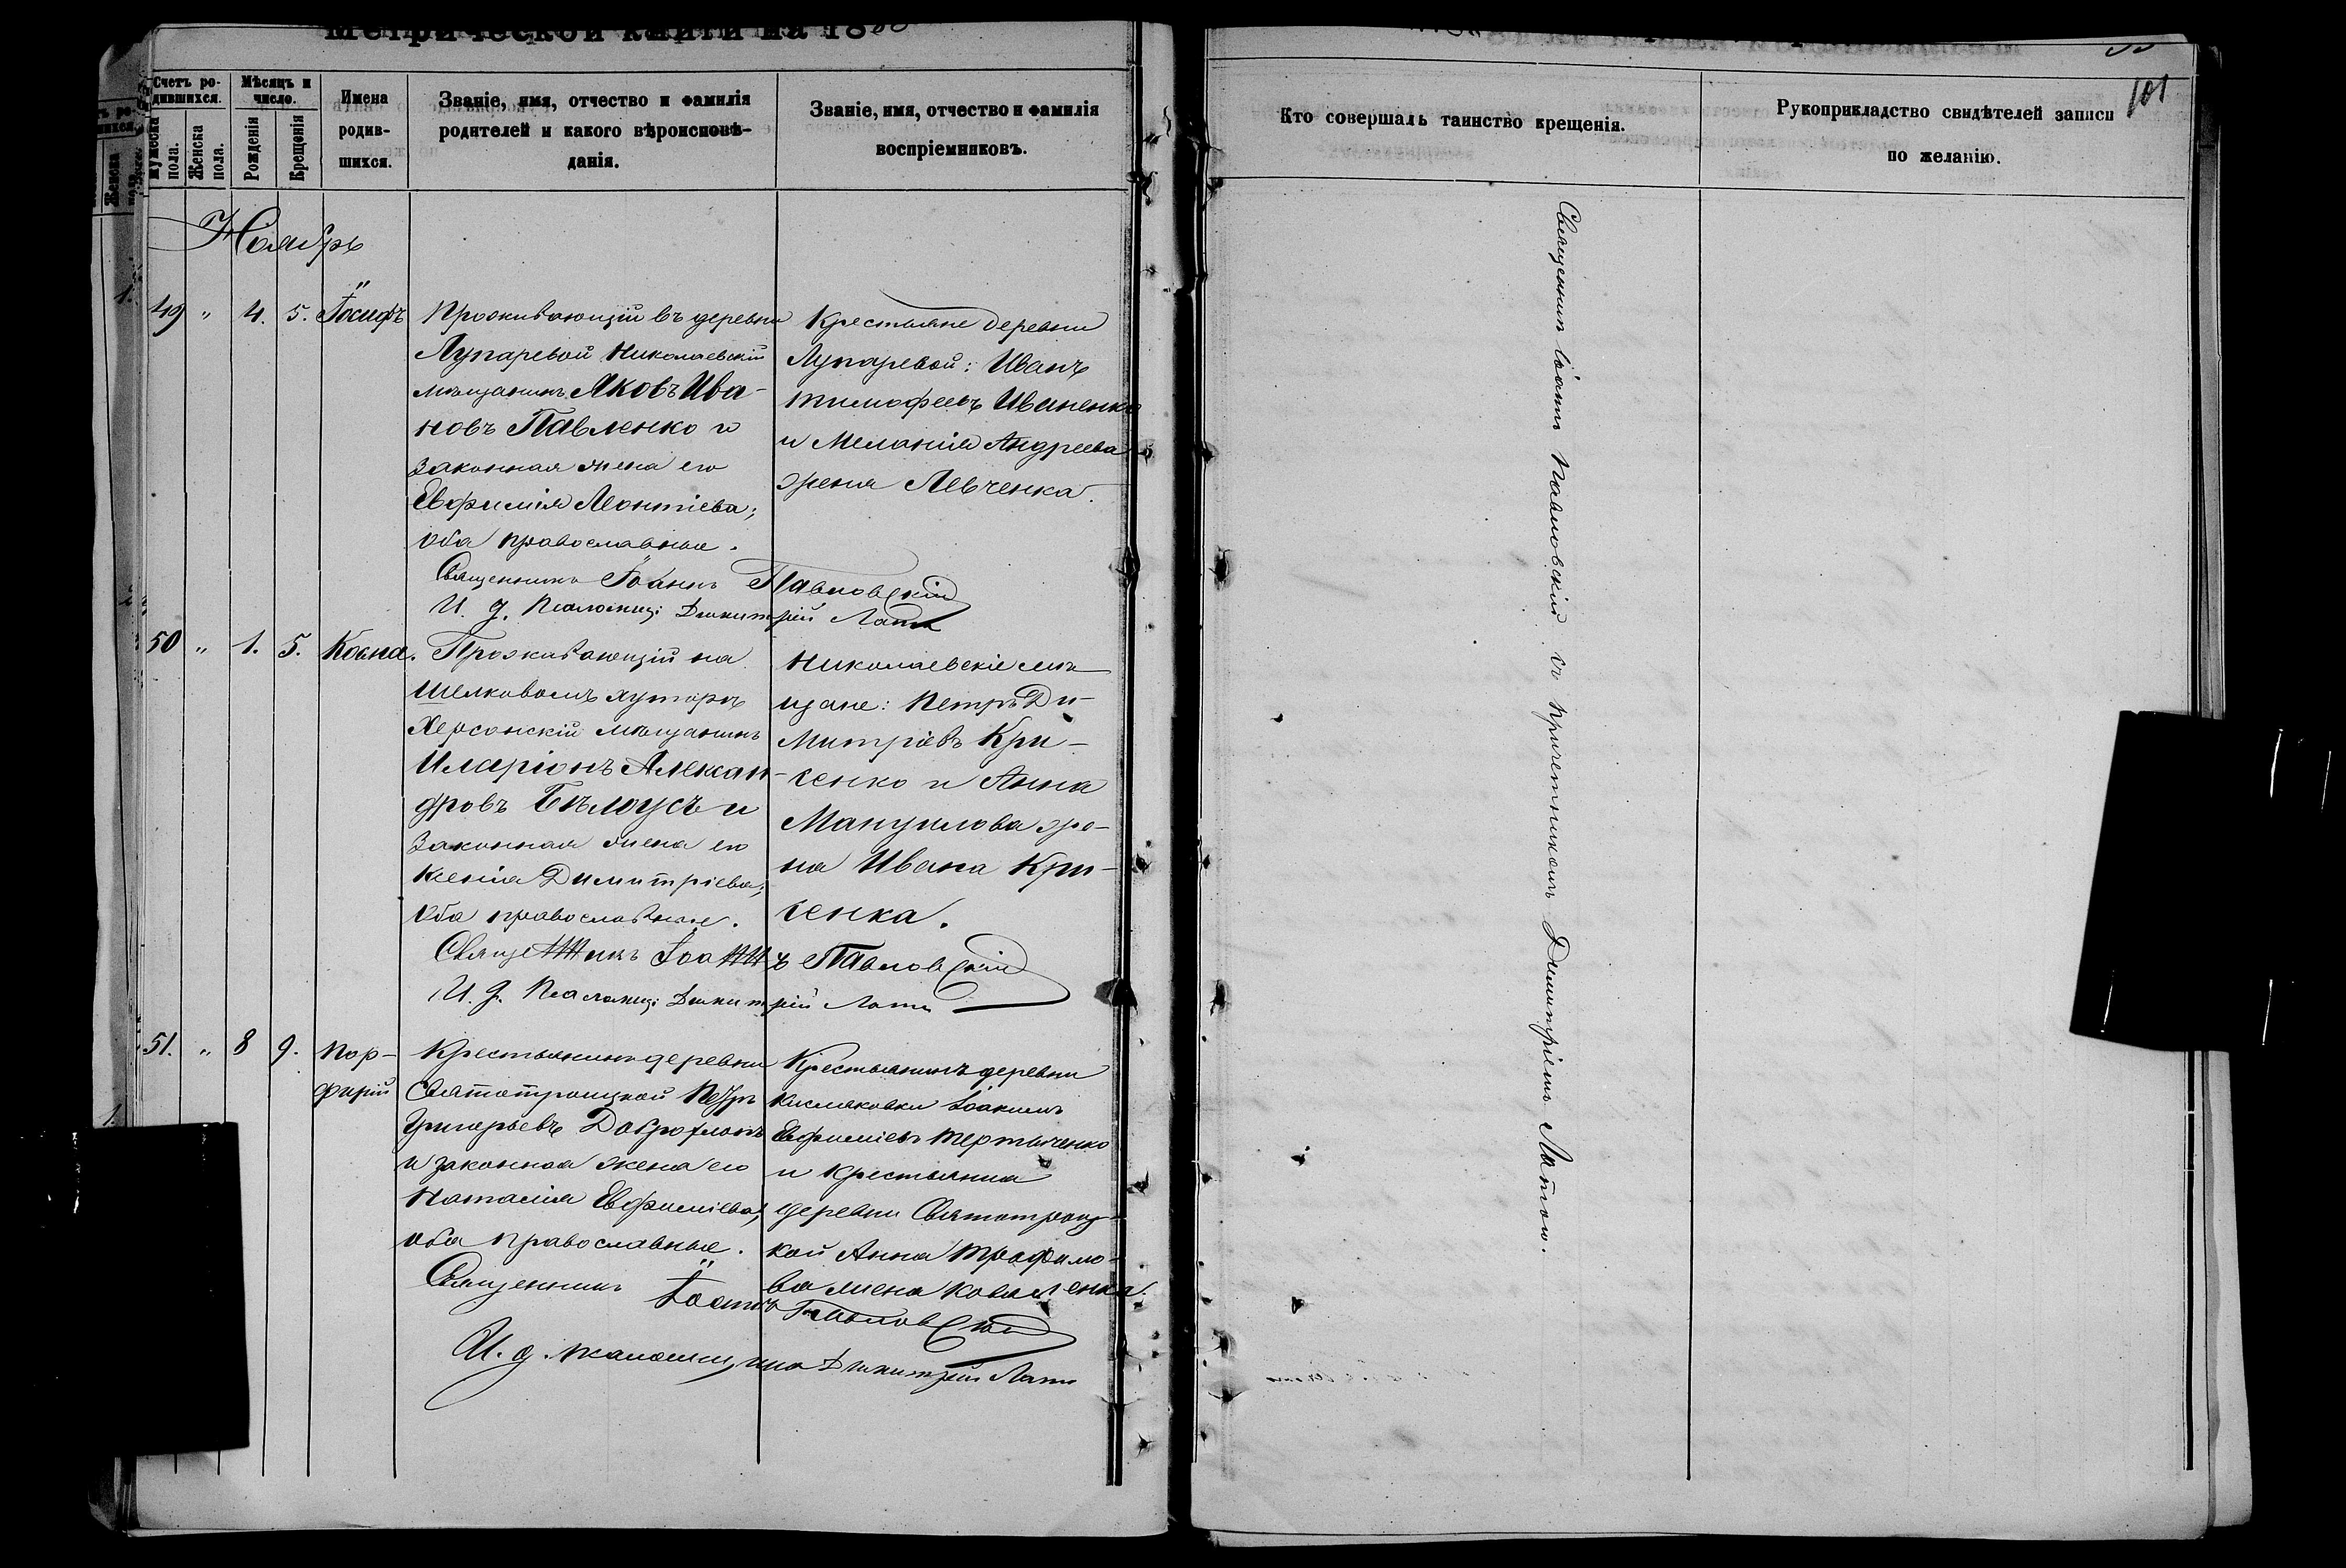 Метрической книги на 18
Счетъ ро-
дившихся.
Мѣсяцъ и
число.
Мужеска
пола.
Женска
пола.
Рожденія
Крещенія
Имена
родив-
шихся.
Званіе, имя, отчество и фамилія
родителей и какого вѣроисповѣ-
данія.
Званіе, имя, отчество и фамилія
воспріемниковъ.
Ноябрь
49 " 4. 5. Іосифъ
Проживающій въ деревни
Лупаревой Николаевскій
мѣщанинъ Яковъ Ива-
новъ Павленко и
законная жена его
Евфимія Леонтіева;
оба православные.
Крестьяне деревни
Лупаревой: Иванъ
Тимофеевъ Иваненко
и Меланія Андреева
жена Левченка.
Священникъ Іоаннъ Павловскій
И. д. Псаломщ: Димитрій
50 " 1. 5. Косма.
Проживающій на
Шелковомъ хуторѣ
Херсонскій мѣщанинъ
Иларіонъ Алексан-
дровъ Бѣлоусъ и
законная жена его
Ксенія Димитріева;
оба православные.
Николаевскіе мѣ-
щане: Петръ Ди-
митріевъ Кри-
сенко и Анна
Мануилова же-
на Ивана Кри-
сенка.
Священникъ Іоаннъ Павловскій
И. д. Псаломщ: Димитрій
51. " 8 9. Пор-
фирій
Крестьянинъ деревни
Святотроицкой Петръ
Григорьевъ
и законная жена его
Наталія Евфиміева;
оба православные.
Крестьянинъ деревни
Кисляковки Іоакимъ
Евфиміевъ Тертыченко
и крестьянка
деревни Святотроиц-
кой Анна Трофимо-
ва жена Коваленка.
Священникъ Іоаннъ Павловскій
И. д. псаломщика Димитрій
101
Кто совершалъ таинство крещенія.
Рукоприкладство свидѣтелей записи
по желанію.
Священникъ Іоаннъ Павловскій съ причетникомъ Димитріемъ